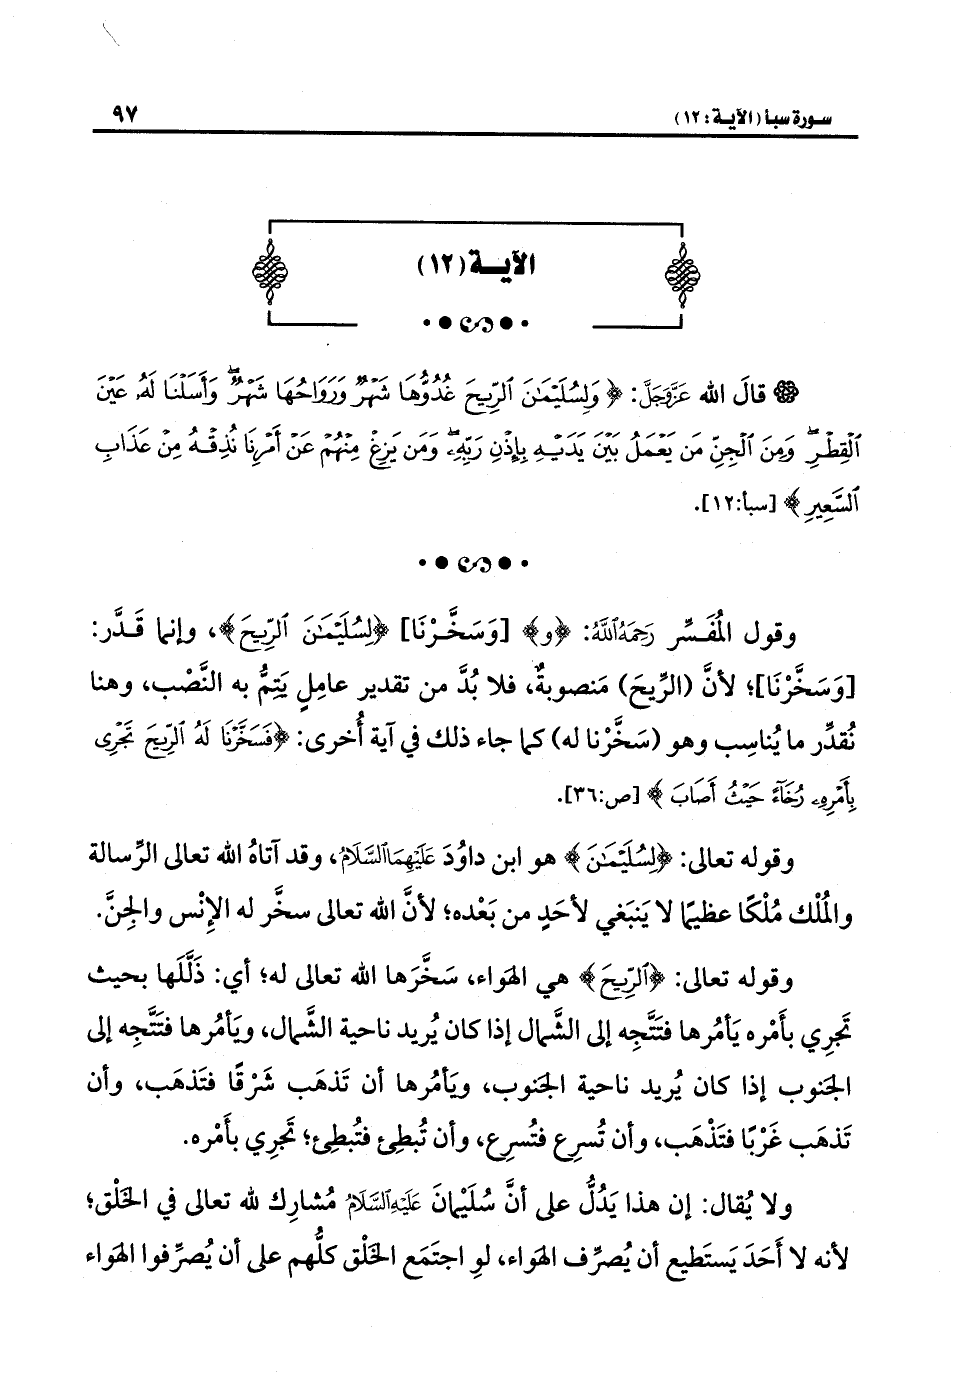 سورة سبأ (الآية: ١٢)
٩٧
الآيــة (١٢)
قالَ الله عَزَّوَجَلَّ: ﴿وَلِسُلَيْمَٰنَ ٱلرِّيحَ غُدُوُّهَا شَهْرٌ وَرَوَاحُهَا شَهْرٌ ۖ وَأَسَلْنَا لَهُۥ عَيْنَ
ٱلْقِطْرِ ۖ وَمِنَ ٱلْجِنِّ مَن يَعْمَلُ بَيْنَ يَدَيْهِ بِإِذْنِ رَبِّهِۦ ۖ وَمَن يَزِغْ مِنْهُمْ عَنْ أَمْرِنَا نُذِقْهُ مِنْ عَذَابِ
ٱلسَّعِيرِ﴾ [سبأ:١٢].
وقول المُفَسِّر رَحِمَهُ ٱللَّهُ: ﴿و﴾ [وَسَخَّرْنَا] ﴿لِسُلَيْمَٰنَ ٱلرِّيحَ﴾، وإنما قَدَّر:
[وَسَخَّرْنَا]؛ لأنَّ (الرِّيحَ) مَنصوبةٌ، فلا بُدَّ من تقدير عامِلٍ يَتِمُّ به النَّصْب، وهنا
نُقدِّر ما يُناسِب وهو (سَخَّرْنا له) كما جاء ذلك في آية أُخرى: ﴿فَسَخَّرْنَا لَهُ ٱلرِّيحَ تَجْرِى
بِأَمْرِهِۦ رُخَآءً حَيْثُ أَصَابَ﴾ [ص:٣٦].
وقوله تعالى: ﴿لِسُلَيْمَٰنَ﴾ هو ابن داوُدَ عَلَيْهِمَا ٱلسَّلَامُ، وقد آتاهُ الله تعالى الرِّسالة
والمُلْك مُلْكًا عظيمًا لا يَنبَغي لأحَدٍ من بَعْده؛ لأنَّ الله تعالى سخَّر له الإِنْس والجِنَّ.
وقوله تعالى: ﴿ٱلرِّيحَ﴾ هي الهَواء، سَخَّرَها الله تعالى له؛ أي: ذَلَّلَها بحيث
تَجرِي بأَمْره يَأمُرها فتَتَّجِه إلى الشَّمال إذا كان يُريد ناحية الشَّمال، ويَأمُرها فتَتَّجِه إلى
الجَنوب إذا كان يُريد ناحية الجَنوب، ويَأمُرها أن تَذهَب شَرْقًا فتَذهَب، وأن
تَذهَب غَرْبًا فتَذْهَب، وأن تُسرِع فتُسرِع، وأن تُبطِئ فتُبطِئ؛ تَجرِي بأَمْره.
ولا يُقال: إن هذا يَدُلُّ على أنَّ سُلَيْمانَ عَلَيْهِ ٱلسَّلَامُ مُشارِك لله تعالى في الخَلْق؛
لأنه لا أَحَدَ يَستَطيع أن يُصرِّف الهَواء، لوِ اجتَمَع الخَلْق كلُّهم على أن يُصرِّفوا الهَواء